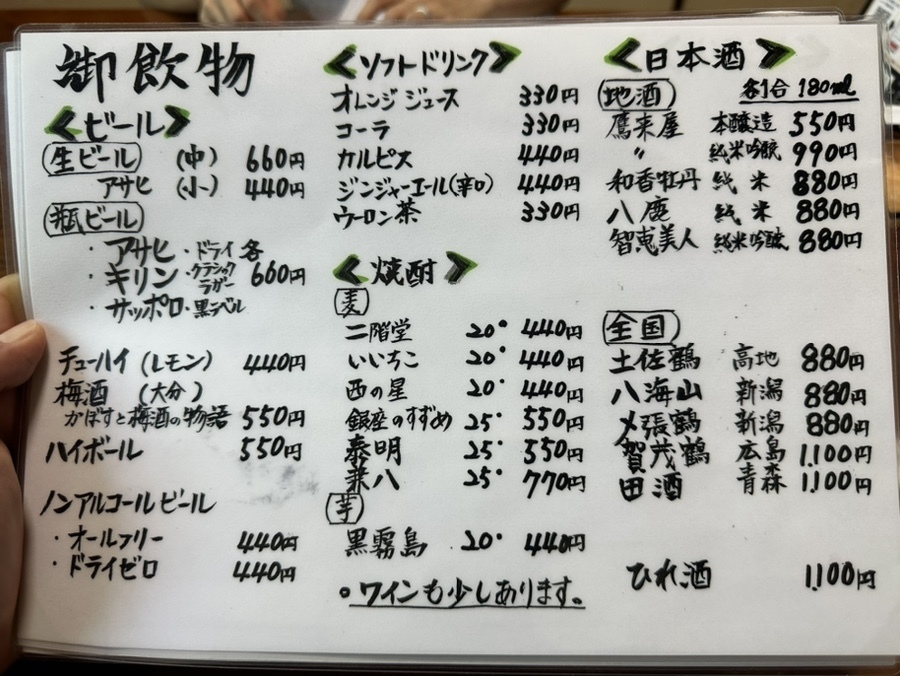 御飲物
<ビール>
生ビール (中) 660円
アサヒ (小) 440円
瓶ビール
・アサヒ・ドライ 各
・キリン・クラシックラガー 660円
・サッポロ・黒ラベル
チューハイ (レモン) 440円
梅酒 (大分)
かぼすと梅酒の物語 550円
ハイボール 550円
ノンアルコールビール
・オールフリー 440円
・ドライゼロ 440円
<ソフトドリンク>
オレンジジュース 330円
コーラ 330円
カルピス 440円
ジンジャーエール(辛口) 440円
ウーロン茶 330円
<焼酎>
麦
二階堂 20° 440円
いいちこ 20° 440円
西の星 20° 440円
銀座のすずめ 25° 550円
泰明 25° 550円
兼八 25° 770円
芋
黒霧島 20° 440円
○ワインも少しあります。
<日本酒>
地酒 各1合 180ml
鷹来屋 本醸造 550円
〃 純米吟醸 990円
和香牡丹 純米 880円
八鹿 純米 880円
智恵美人 純米吟醸 880円
全国
土佐鶴 高地 880円
八海山 新潟 880円
〆張鶴 新潟 880円
賀茂鶴 広島 1.100円
田酒 青森 1.100円
ひれ酒 1.100円